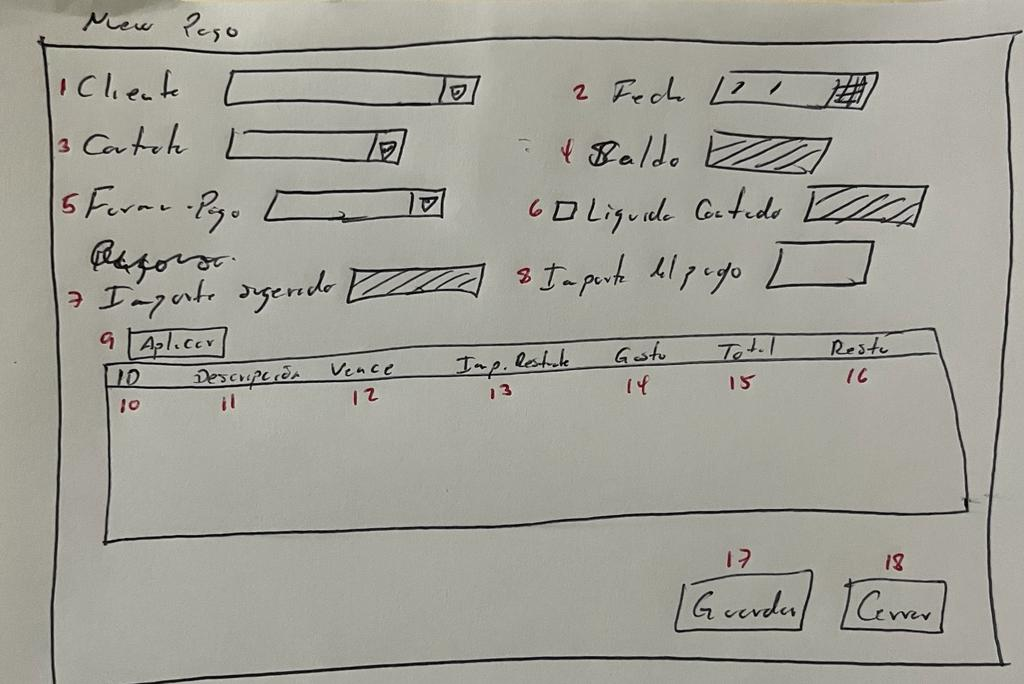 New Pago
1 Cliente
2 Fecha
3 Contrato
4 Saldo
5 Forma-Pago
6 Liquida Contado
7 Importe sugerido
8 Importe del pago
9 Aplicar
ID Descripción Vence Imp. Restante Gasto Total Resto
10 11 12 13 14 15 16
17 18
Guardar Cerrar